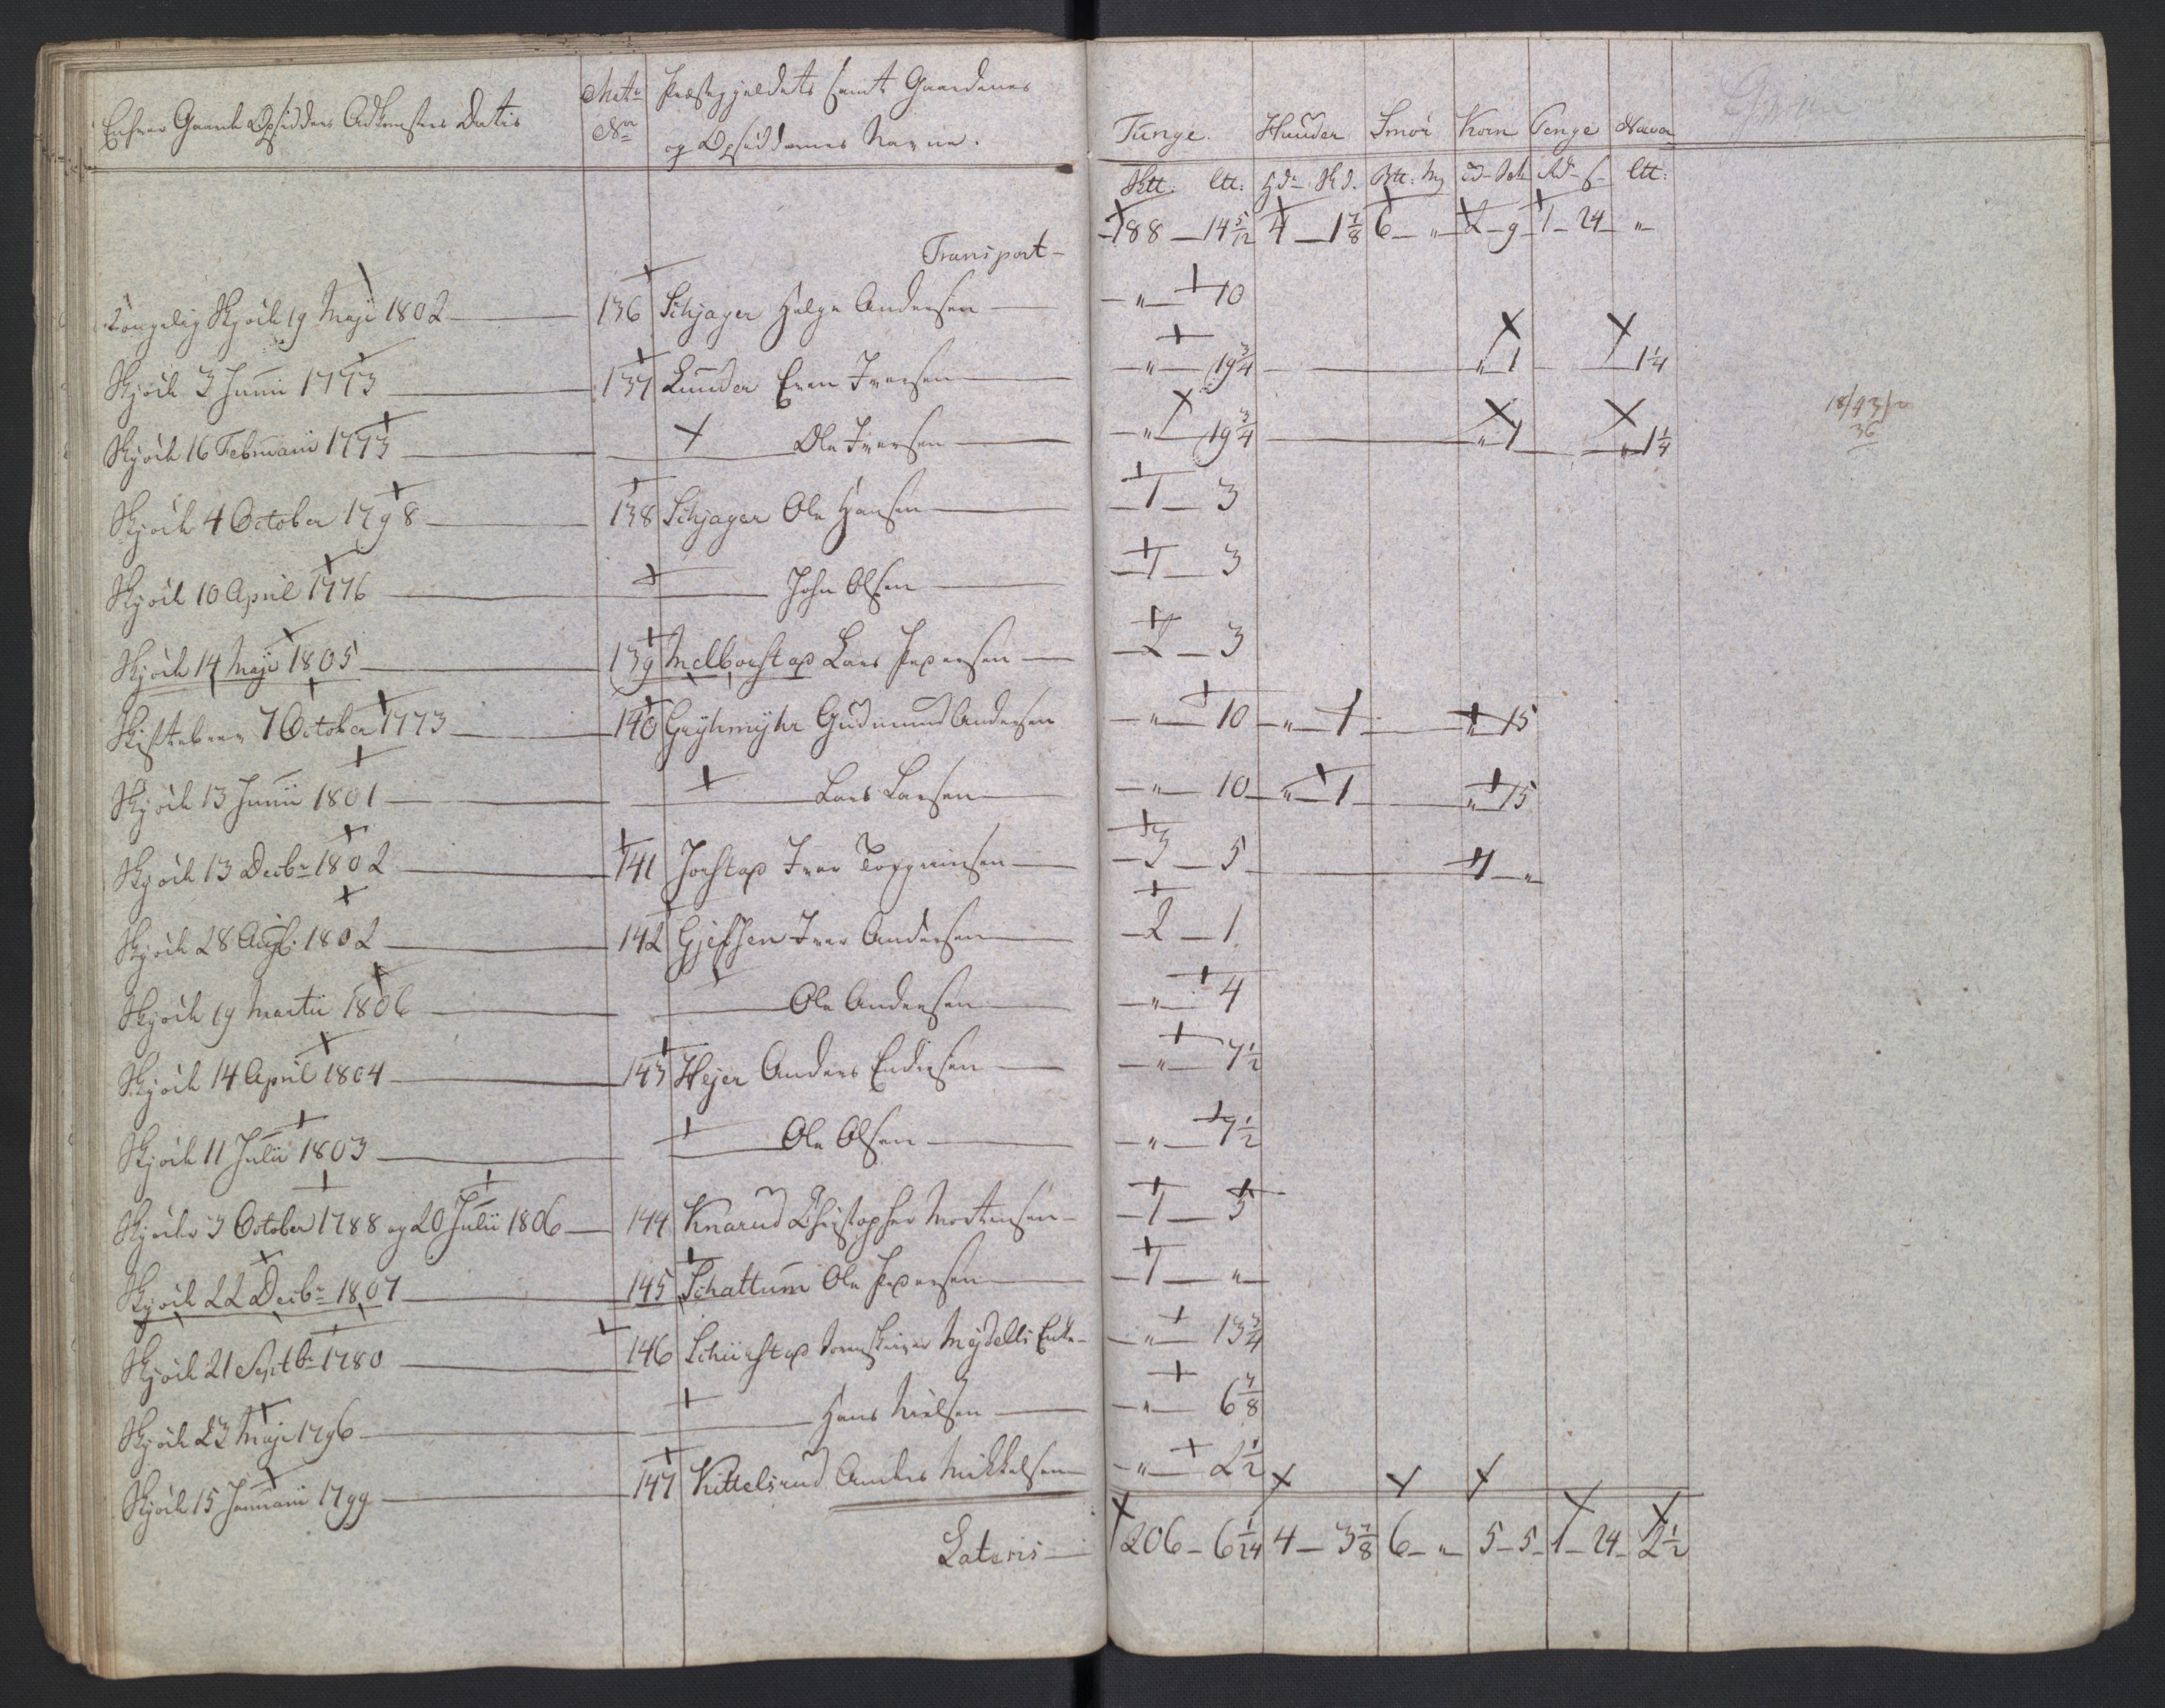 Enhver Gaards Opsidders Adkomsters Datis | Matr | Præstegjeldets samt Gaardenes | Tunge. | Huuder | Smør | Korn | Penge
Nr | og Opsiddernes Navne.
Sktt: Ltt: | Hdr Skd. | Btt: Mg | Td- Sch | Rd- s | Ltt:
Transport – 188 – 14 5/12 | 4 – 1 7/8 | 6 – " | 2 – 9 | 1 – 24 – | "
Kongelig Skjøde 19 Maji 1802 – 136 Schjager Helge Andersen – " – 10
Skjøde 3 Junii 1773 – 137 Lunder Even Iversen – " – 19 3/4 – " 1 – 1 1/4
Skjøde 16 Februarii 1773 – Ole Iversen – " – 19 3/4 – " 1 – " 1 1/4
Skjøde 4 October 1798 – 138 Schjager Ole Hansen – 1 – 3
Skjøde 10 April 1776 – John Olsen – 1 – 3
Skjøde 14 Maji 1805 – 139 Melborstap Lars Pedersen – 2 – 3
Skiftebrev 7 October 1773 – 140 Gryhmyhr Gudmund Andersen – " – 10 – " – 1 – " 15
Skjøde 13 Junii 1801 – Lars Larsen – " – 10 – " – 1 – " 15
Skjøde 13 Decbr 1802 – 141 Jorstap Iver Torgrimsen – 3 – 5 – 1 – "
Skjøde 28 Augt. 1802 – 142 Gjefsen Iver Andersen – 2 – 1
Skjøde 19 Martii 1806 – Ole Andersen – " – 4
Skjøde 14 April 1804 – 143 Hejer Anders Endresen – " – 7 1/2
Skjøde 11 Julii 1803 – Ole Olsen – " – 7 1/2
Skjøder 3 October 1788 og 20 Julii 1806 – 144 Knarud Christopher Mortensen – 1 – 5
Skjøde 22 Decbr 1807 – 145 Schattum Ole Pedersen – 1 – "
Skjøde 21 Septbr 1780 – 146 Schiørstap Mydells Enke – " – 13 3/4
Skjøde 23 Maji 1796 – Hans Nielsen – " – 6 7/8
Skjøde 15 Januarii 1799 – 147 Kittelsrud Anders Mikkelsen – " – 2 1/2
Lateris – 206 – 6 1/24 | 4 – 3 7/8 | 6 – " | 5 – 5 | 1 – 24 – | 2 1/2
36